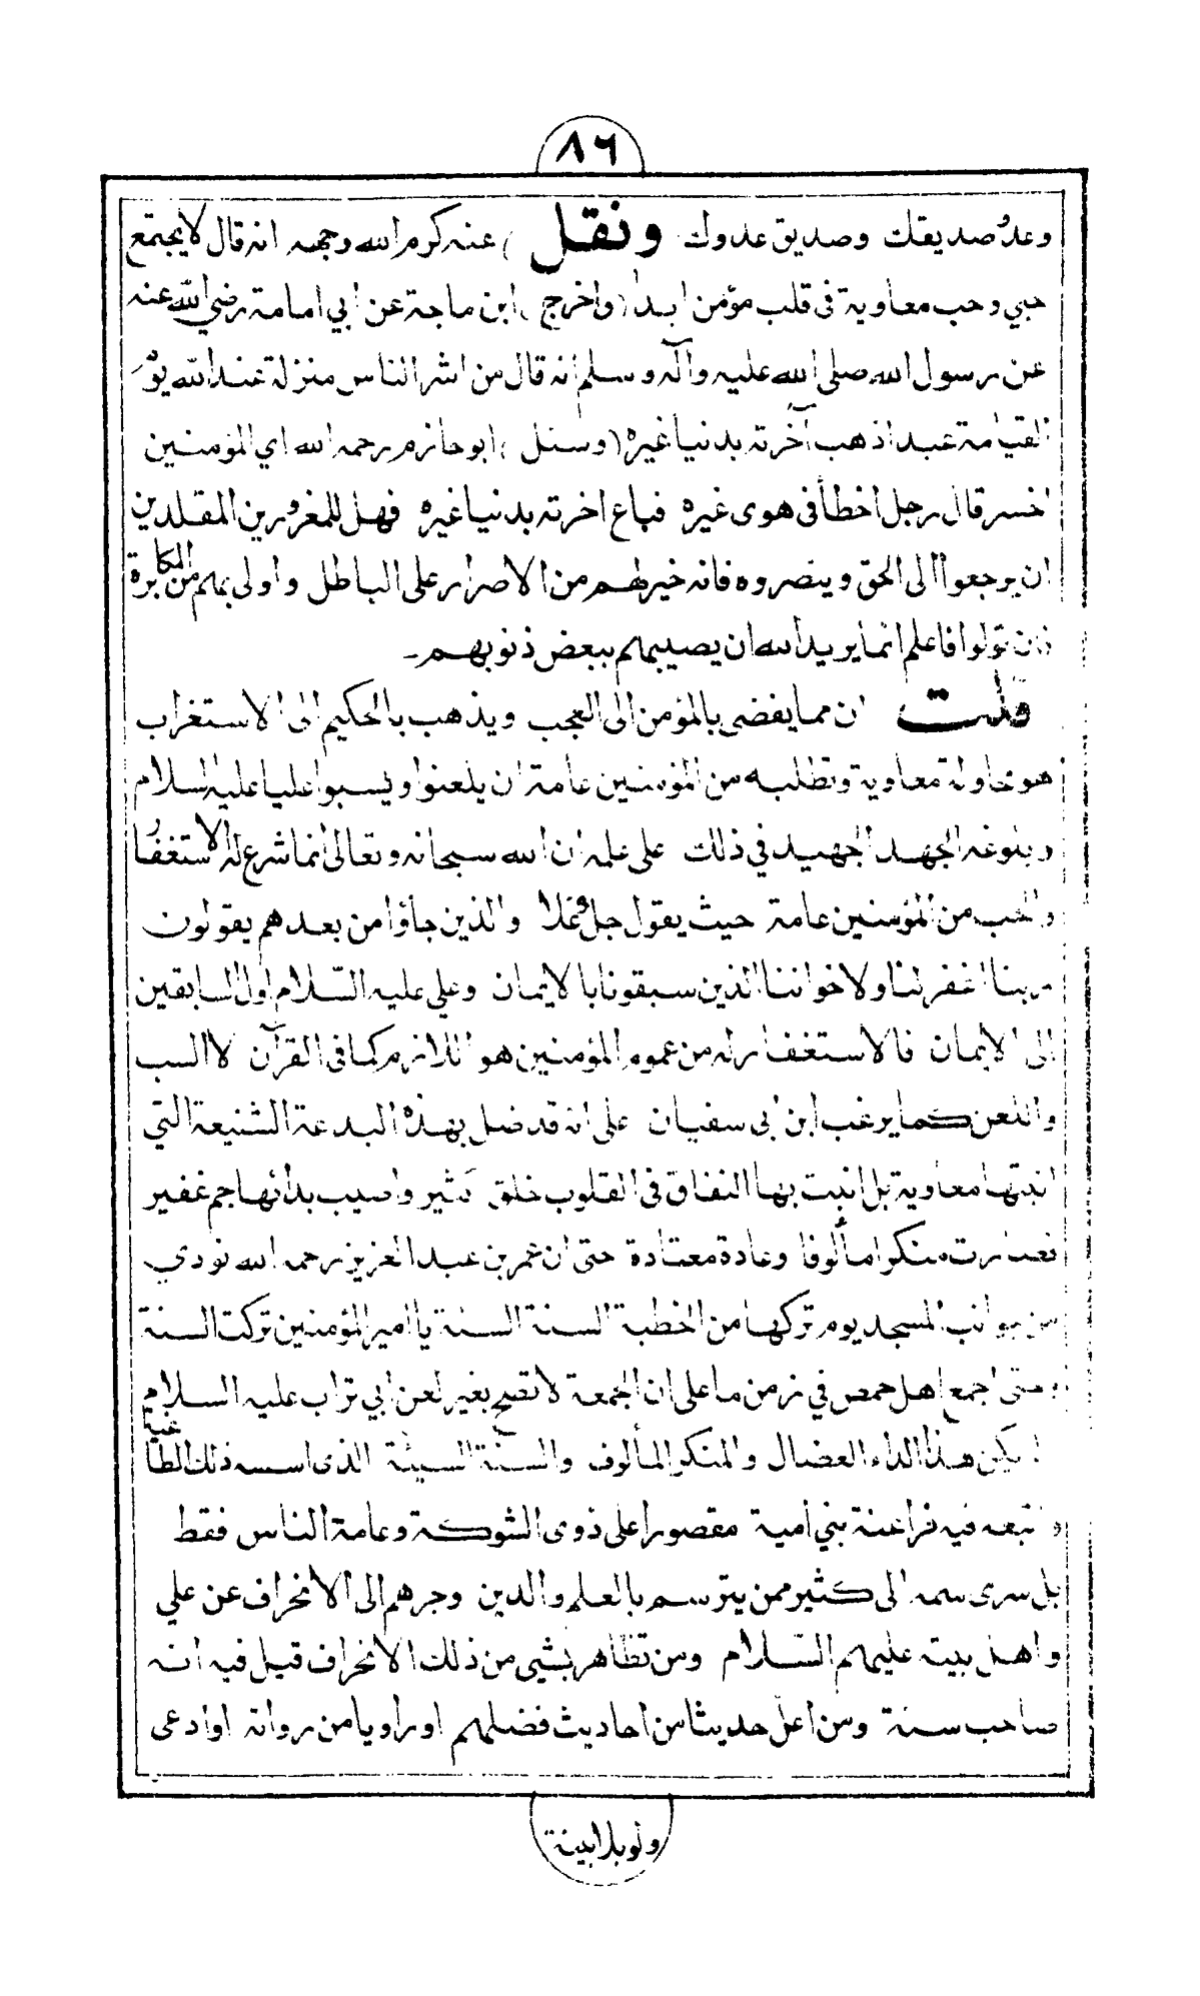 ٨٦
وعدو صديقك وصديق عدوك ونقل ) عنه كرم الله وجهه انه قال لا يجتمع
حبي وحب معاوية في قلب مؤمن ابدا ( واخرج ) ابن ماجة عن ابي امامة رضي الله عنه
عن رسول الله صلى الله عليه وآله وسلم انه قال من اشر الناس منزلة عند الله يوم
القيامة عبد اذهب آخرته بدنيا غيره ( وسئل ) ابو حازم رحمه الله اي المؤمنين
اخسر قال رجل اخطأ في هوى غيره فباع اخرته بدنيا غيره فهل للمغرورين المقلدين
ان يرجعوا الى الحق وينصروه فانه خير لهم من الاصرار على الباطل واولى بهم من المكابرة
فان تولوا فاعلم انما يريد الله ان يصيبهم ببعض ذنوبهم ـ
قلت ان مما يفضى بالمؤمن الى العجب ويذهب بالحكيم الى الاستغراب
هو محاولة معاوية وتطلبه من المؤمنين عامة ان يلعنوا ويسبوا عليا عليه السلام
وبلوغه الجهد الجهيد في ذلك على علمه ان الله سبحانه وتعالى انما شرع له الاستغفار
والحب من المؤمنين عامة حيث يقول جل وعلا والذين جاؤا من بعدهم يقولون
ربنا اغفر لنا ولاخواننا الذين سبقونا بالايمان وعلي عليه السّلام اول السابقين
الى الايمان فالاستغفار له من عموم المؤمنين هو اللازم كما في القرآن لا السب
واللعن كما يرغب ابن ابي سفيان على انه قد ضل بهذه البدعة الشنيعة التي
ابتدعها معاوية بل انبت بها النفاق في القلوب خلق كثير واصيب بدائها جم غفير
فصارت منكرا مألوفا وعادة معتادة حتى ان عمر بن عبد العزيز رحمه الله نودي
من جوانب المسجد يوم تركها من الخطبة السنة السنة يا امير المؤمنين تركت السنة
وحتى اجمع اهل حمص في زمن ما على ان الجمعة لا تصح بغير لعن ابي تراب عليه السلام
لم يكن هذا الداء العضال والمنكر المألوف والسنة السيئة الذى اسسه ذلك الطاغية
واتبعه فيه فراعنة بني أمية مقصورا على ذوى الشوكة وعامة الناس فقط
بل سرى سمه الى كثير ممن يتوسم بالعلم والدين وجرهم الى الانحراف عن علي
واهل بيته عليهم السّلام ومن تظاهر بشيء من ذلك الانحراف قيل فيه انه
صاحب سنة ومن اعل حديثا من احاديث فضلهم او راويا من رواته او ادعى
ولو بلا بينة